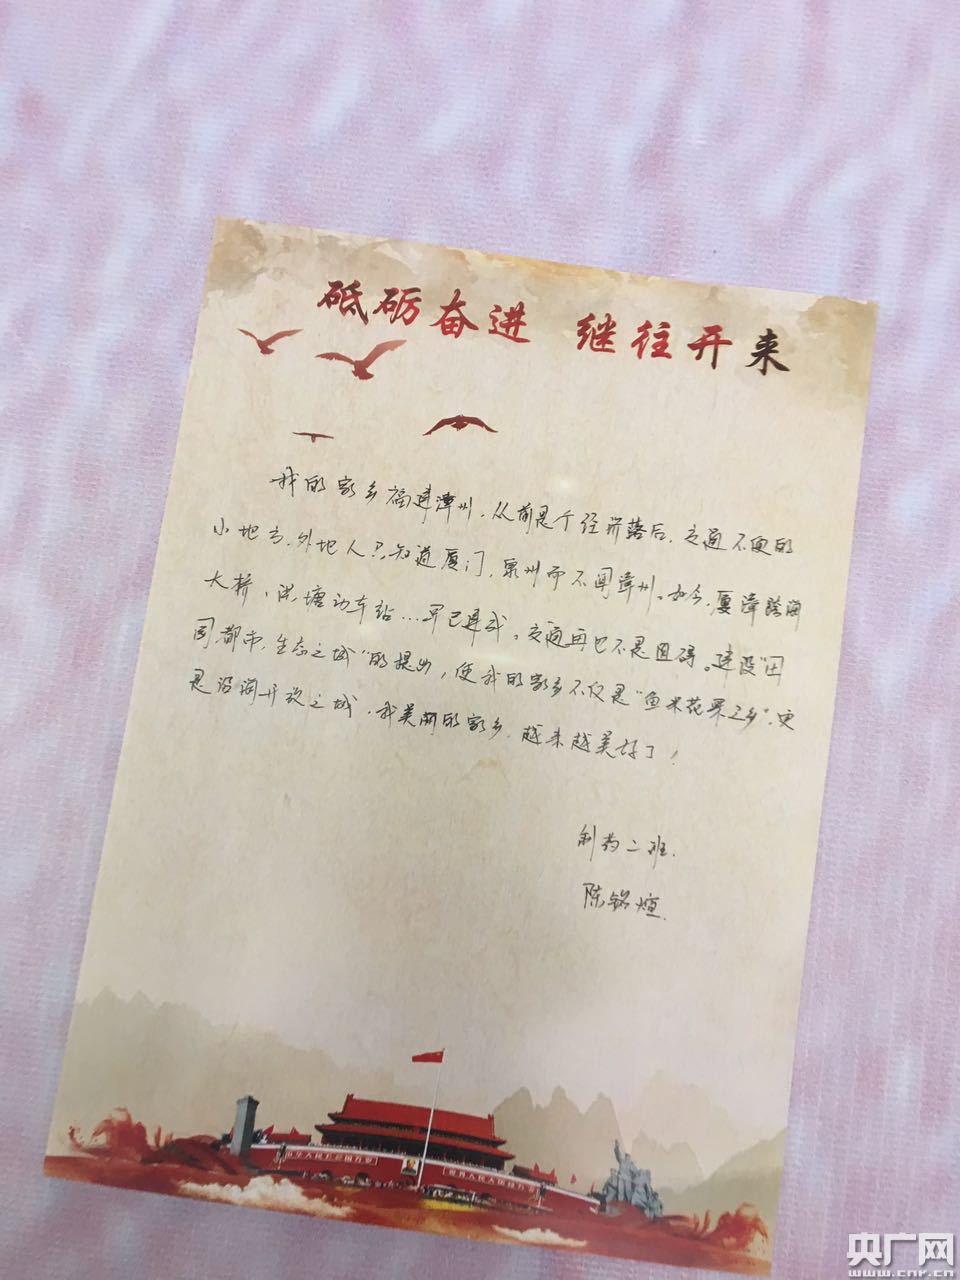 砥砺奋进 继往开来
我的家乡福建漳州,从前是个经济落后,交通不便的
小地方,外地人只知道厦门,泉州而不闻漳州。如今,厦漳跨海
大桥、洪塘动车站...早已建成。交通再也不是阻碍。建设"田
园都市,生态之城"的提出,使我的家乡不仅是"鱼米花果之乡",更
是沿海开放之城,我美丽的家乡,越来越美好了!
制药二班.
陈铭煊.
中华人民共和国万岁
世界人民大团结万岁
央广网
www.cnr.cn